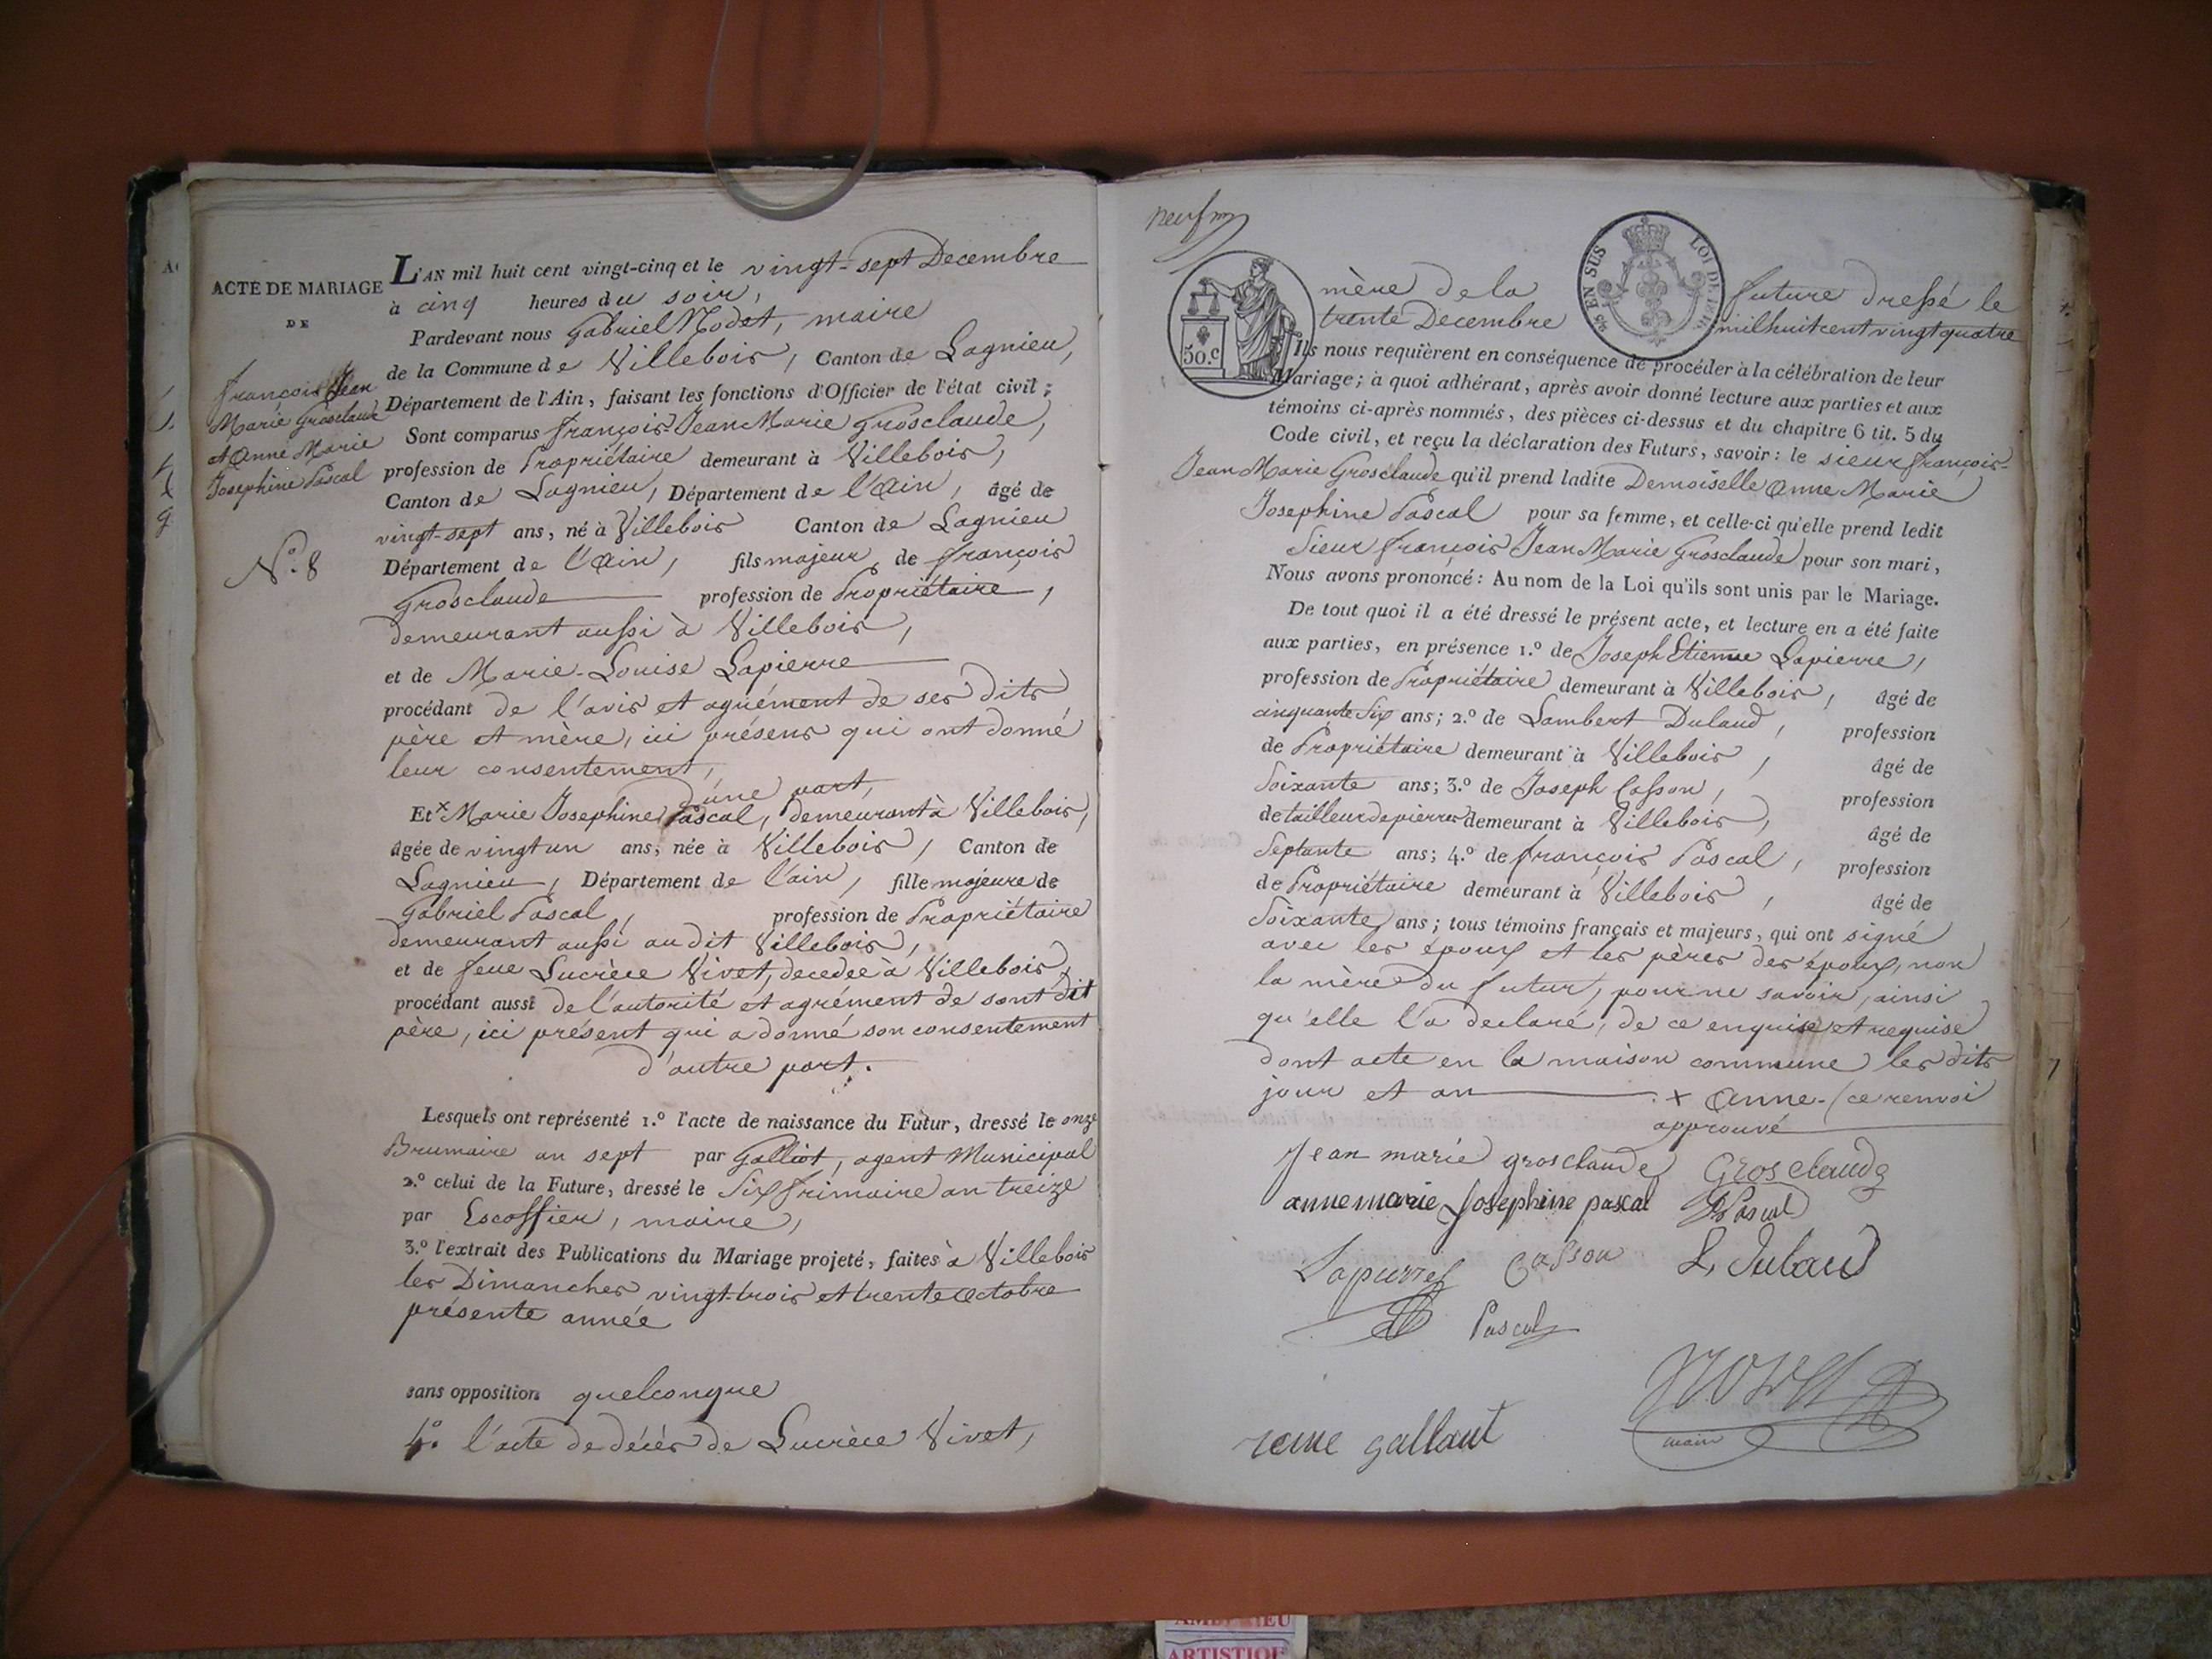 ACTE DE MARIAGE
DE
François Jean
Marie Grosclaude
et Anne Marie
Josephine Pascal
N.º 8
L'AN mil huit cent vingt-cinq et le vingt-sept Decembre
à cinq heures du soir,
Pardevant nous Gabriel Nodet, maire
de la Commune de Villebois, Canton de Lagnieu,
Département de l'Ain, faisant les fonctions d'Officier de l'état civil;
Sont comparus françois-Jean Marie Grosclaude,
profession de Propriétaire demeurant à Villebois,
Canton de Lagnieu, Département de l'Ain, âgé de
vingt-sept ans, né à Villebois Canton de Lagnieu
Département de l'Ain, fils majeur de françois
Grosclaude profession de Propriétaire,
demeurant aussi à Villebois,
et de Marie-Louise Lapierre
procédant de l'avis et agrément de ses dits
père et mère, ici présens qui ont donné
leur consentement,
d'une part,
Et x Marie Josephine Pascal, demeurant à Villebois,
âgée de vingt un ans, née à Villebois, Canton de
Lagnieu, Département de l'ain, fille majeure de
Gabriel Pascal, profession de Propriétaire
demeurant aussi au dit Villebois,
et de feue Lucrèce Vivet, decedée à Villebois
procédant aussi de l'autorité et agrément de sont dit
père, ici présent qui a donné son consentement
d'autre part.
Lesquels ont représenté 1.º l'acte de naissance du Futur, dressé le onze
Brumaire an sept par Galliot, agent Municipal
2.º celui de la Future, dressé le Six frimaire an treize
par Escoffier, maire,
3.º l'extrait des Publications du Mariage projeté, faites à Villebois
les Dimanches vingt-trois et trente Octobre
présente année
sans opposition quelconque
4.º l'acte de décès de Lucrèce Vivet,
neuf
50.c
EN SUS
LOI DE
mère de la future dressé le
trente Decembre milhuitcent vingt quatre
Ils nous requièrent en conséquence de procéder à la célébration de leur
Mariage; à quoi adhérant, après avoir donné lecture aux parties et aux
témoins ci-après nommés, des pièces ci-dessus et du chapitre 6 tit. 5 du
Code civil, et reçu la déclaration des Futurs, savoir: le sieur françois-
Jean Marie Grosclaude qu'il prend ladite Demoiselle Anne Marie
Josephine Pascal pour sa femme, et celle-ci qu'elle prend ledit
Sieur françois Jean Marie Grosclaude pour son mari,
Nous avons prononcé: Au nom de la Loi qu'ils sont unis par le Mariage.
De tout quoi il a été dressé le présent acte, et lecture en a été faite
aux parties, en présence 1.º de Joseph Etienne Lapierre,
profession de Propriétaire demeurant à Villebois, âgé de
cinquante Six ans; 2.º de Lambert Dulaud, profession
de Propriétaire demeurant à Villebois, âgé de
Soixante ans; 3.º de Joseph Casson, profession
de tailleur de pierres demeurant à Villebois, âgé de
Septante ans; 4.º de françois Pascal, profession
de Propriétaire demeurant à Villebois, âgé de
Soixante ans; tous témoins français et majeurs, qui ont signé
avec les époux et les pères des époux, non
la mère du futur, pour ne savoir, ainsi
qu'elle l'a declaré, de ce enquise et requise
dont acte en la maison commune les dits
jour et an x Anne-(ce renvoi
approuvé
Jean marie grosclaude Grosclaude
anne marie Josephine pascal Pascal
Lapierre Casson L. Dulaud
Pascal
reine gallant Nodet
maire
ARTISTIQUE